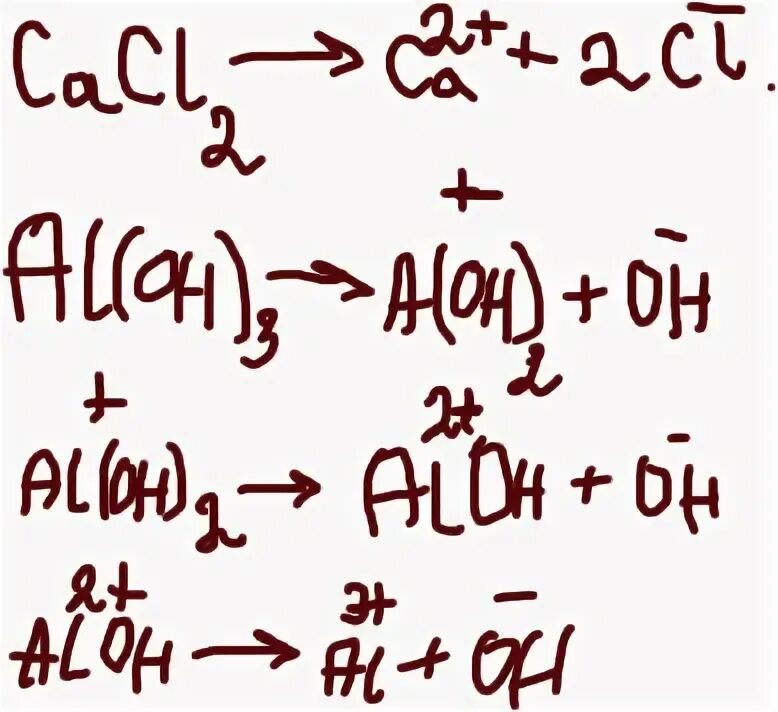 CaCl₂ → Ca²⁺ + 2Cl⁻.
Al(OH)₃ → A(OH)₂⁺ + OH⁻
Al(OH)₂⁺ → AlOH²⁺ + OH⁻
AlOH²⁺ → Al³⁺ + OH⁻